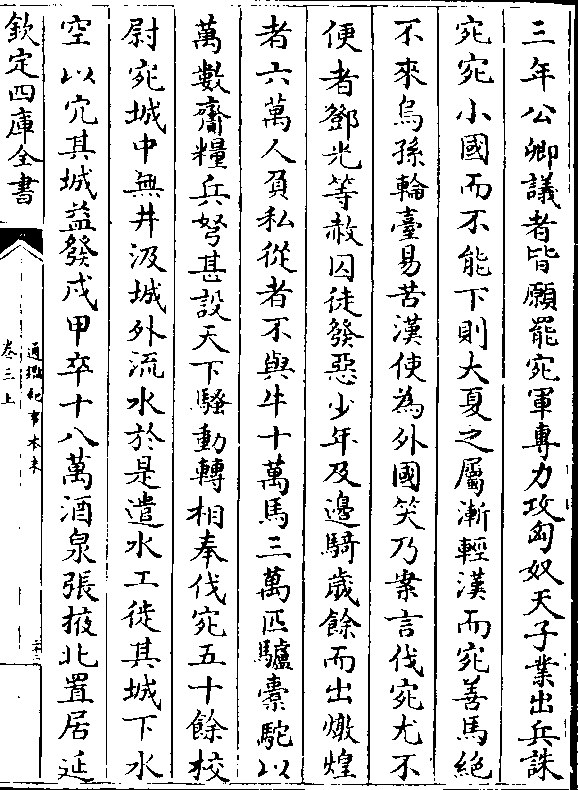 三年公卿議者皆願罷宛軍專力攻匈奴天子業出兵誅
宛宛小國而不能下則大夏之屬漸輕漢而宛善馬絶
不來烏孫輪臺易苦漢使為外國笑乃案言伐宛尤不
便者鄧光等赦囚徒發惡少年及邊騎歲餘而出燉煌
者六萬人負私從者不與牛十萬馬三萬匹驢橐駝以
萬數齎糧兵弩甚設天下騷動轉相奉伐宛五十餘校
尉宛城中無井汲城外流水於是遣水工徙其城下水
空以穴其城益發戍甲卒十八萬酒泉張掖北置居延
欽定四庫全書
通鑑紀事本末
卷三上